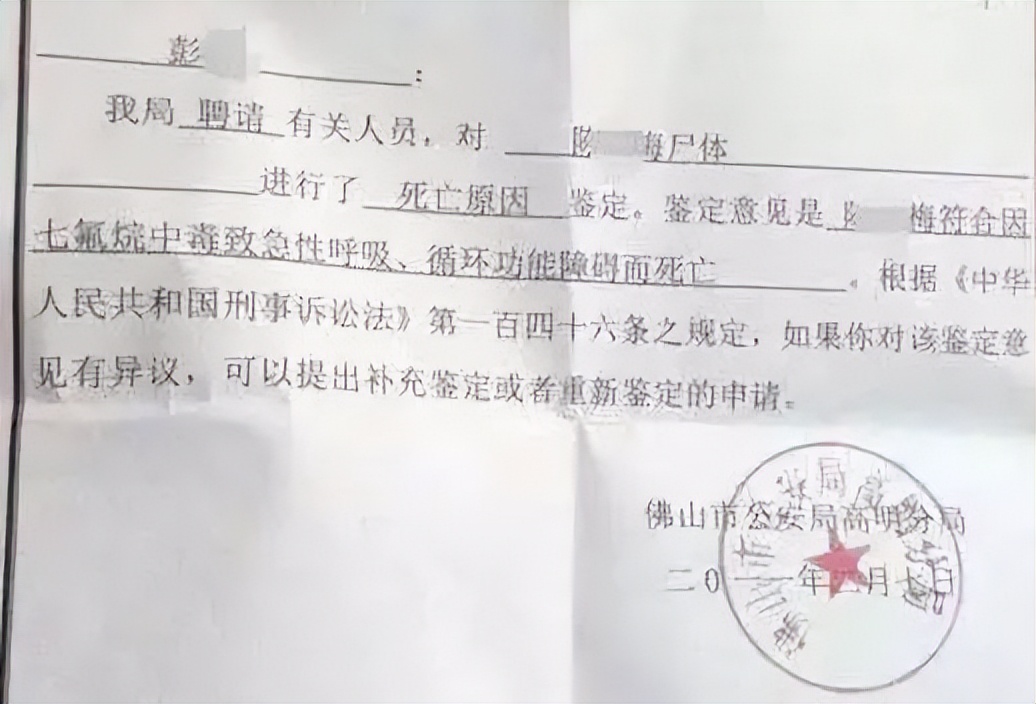 彭
:
我局 聘请 有关人员，对 尸体
进行了 死亡原因 鉴定。鉴定意见是 梅符合因
七氟烷中毒致急性呼吸、循环功能障碍而死亡 。根据《中华
人民共和国刑事诉讼法》第一百四十六条之规定，如果你对该鉴定意
见有异议，可以提出补充鉴定或者重新鉴定的申请。
佛山市公安局高明分局
二0 年 月 日